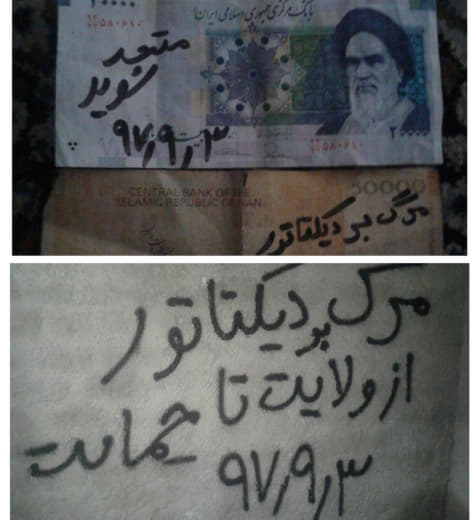 بانک مرکزی جمهوری اسلامی ایران
متحد
شوید
۹۷٫۹٫۳
۲۰۰۰۰
CENTRAL BANK OF THE
ISLAMIC REPUBLIC OF IRAN
50000
مرگ بر دیکتاتور
مرگ بر دیکتاتور
از ولایت تا
۹۷٫۹٫۳